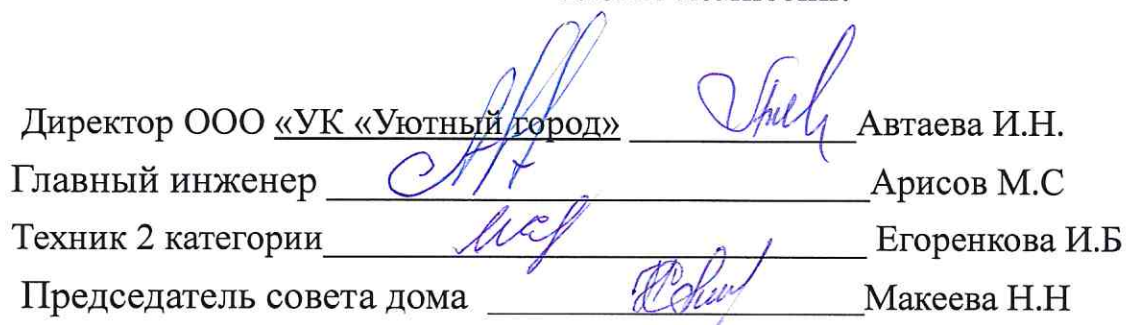 Директор ООО «УК «Уютный город» Автаева И.Н.
Главный инженер Арисов М.С
Техник 2 категории Егоренкова И.Б
Председатель совета дома Макеева Н.Н